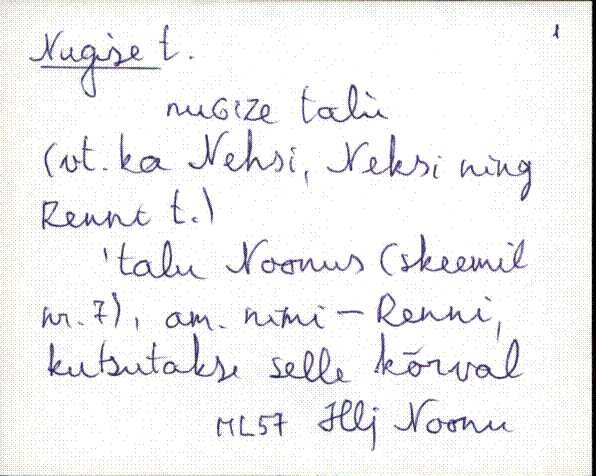 1
Nugise t.
nuGIZE talù
(vt. ka Nehsi, Neksi ning
Renni t.)
'talu Noonus (skeemil
nr. 7), am. nimi – Renni,
kutsutakse selle kõrval
ML57 Hlj Noonu